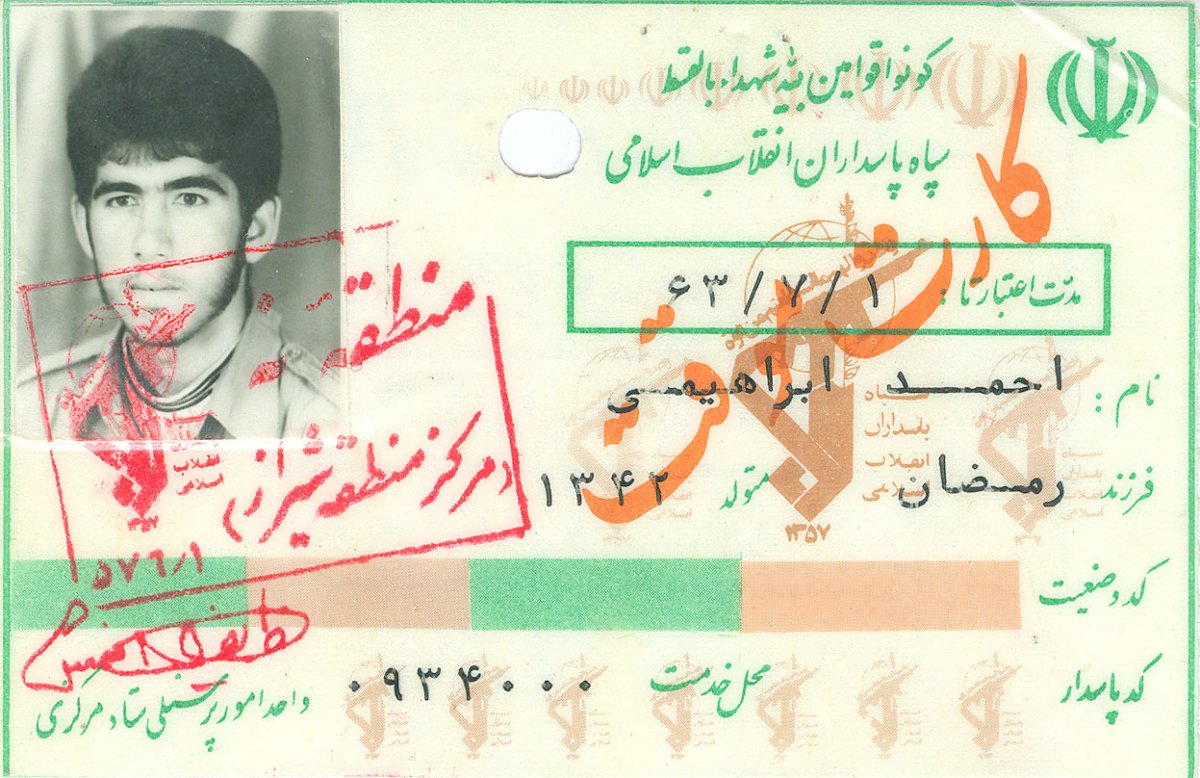 کونوا قوامین لله شهداء بالقسط
سپاه پاسداران انقلاب اسلامی
کارت موقت
مدت اعتبار تا : ۶۳/۷/۱
نام : احمد ابراهیمی
فرزند رمضان متولد ۱۳۴۲
کد وضعیت
کد پاسدار
محل خدمت ۰۹۳۴۰۰۰
واحد امور پرسنلی ستاد مرکزی
سپاه
پاسداران
انقلاب
اسلامی
۱۳۵۷
منطقه
مرکز منطقه شیراز
۵۷۶/۱